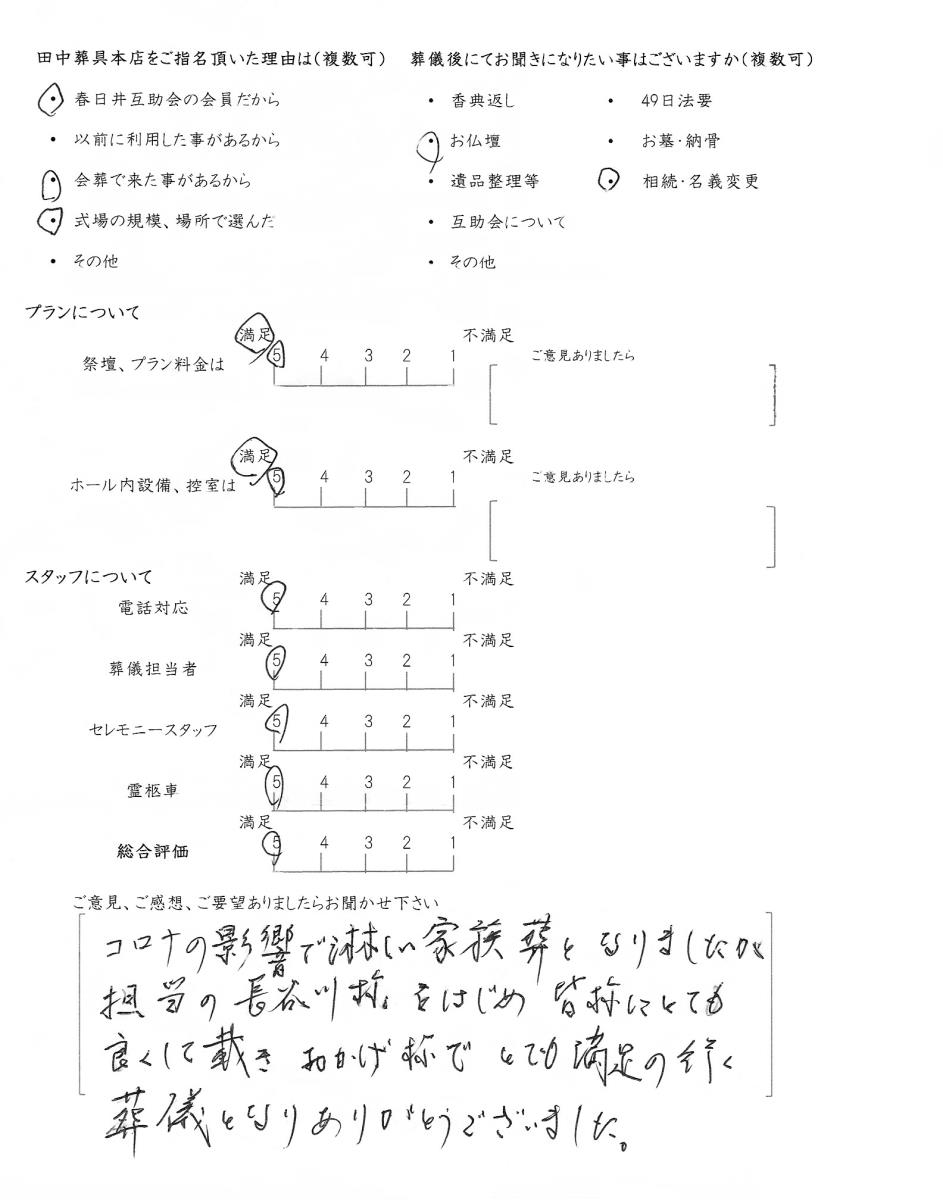 田中葬具本店をご指名頂いた理由は(複数可) 葬儀後にてお聞きになりたい事はございますか(複数可)
・ 春日井互助会の会員だから ・ 香典返し ・ 49日法要
・ 以前に利用した事があるから ・ お仏壇 ・ お墓・納骨
・ 会葬で来た事があるから ・ 遺品整理等 ・ 相続・名義変更
・ 式場の規模、場所で選んだ ・ 互助会について
・ その他 ・ その他
プランについて
満足 不満足
祭壇、プラン料金は 5 4 3 2 1 ご意見ありましたら
満足 不満足
ホール内設備、控室は 5 4 3 2 1 ご意見ありましたら
スタッフについて 満足 不満足
電話対応 5 4 3 2 1
満足 不満足
葬儀担当者 5 4 3 2 1
満足 不満足
セレモニースタッフ 5 4 3 2 1
満足 不満足
霊柩車 5 4 3 2 1
満足 不満足
総合評価 5 4 3 2 1
ご意見、ご感想、ご要望ありましたらお聞かせ下さい
コロナの影響で淋しい家族葬となりましたが、
担当の長谷川様をはじめ皆様にとても
良くして戴きおかげ様でとても満足の行く
葬儀となりありがとうございました。